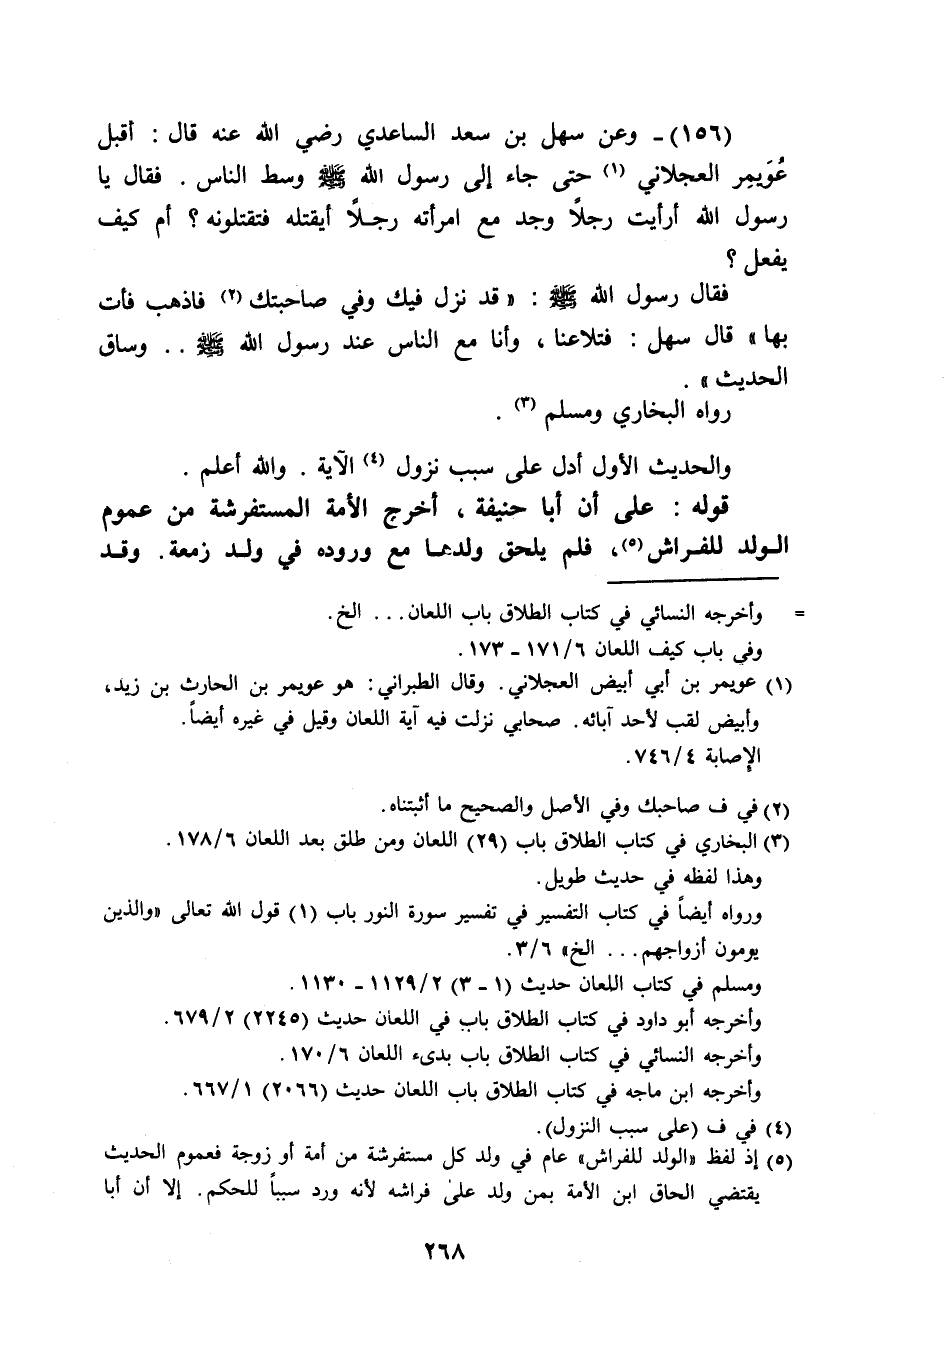 (١٥٦) ـ وعن سهل بن سعد الساعدي رضي الله عنه قال : أقبل
عُوَيمِر العجلاني (١) حتى جاء إلى رسول الله ﷺ وسط الناس . فقال يا
رسول الله أرأيت رجلاً وجد مع امرأته رجـلاً أيقتله فتقتلونه ؟ أم كيف
يفعل ؟
فقال رسول الله ﷺ : « قد نزل فيك وفي صاحبتك (٢) فاذهب فأت
بها » قال سهل : فتلاعنا ، وأنا مع الناس عند رسول الله ﷺ . . وساق
الحديث » .
رواه البخاري ومسلم (٣) .
والحديث الأول أدل على سبب نزول (٤) الآية . والله أعلم .
قوله : على أن أبا حنيفة ، أخرج الأمة المستفرشة من عموم
الـولد للفـراش (٥)، فلم يلحق ولدهـا مع وروده في ولـد زمعة. وقـد
= وأخرجه النسائي في كتاب الطلاق باب اللعان. . . الخ.
وفي باب كيف اللعان ١٧١/٦ ـ ١٧٣ .
(١) عويمر بن أبي أبيض العجلاني. وقال الطبراني: هو عويمر بن الحارث بن زيد،
وأبيض لقب لأحد آبائه. صحابي نزلت فيه آية اللعان وقيل في غيره أيضاً.
الإصابة ٧٤٦/٤.
(٢) في ف صاحبك وفي الأصل والصحيح ما أثبتناه.
(٣) البخاري في كتاب الطلاق باب (٢٩) اللعان ومن طلق بعد اللعان ١٧٨/٦ .
وهذا لفظه في حديث طويل.
ورواه أيضاً في كتاب التفسير في تفسير سورة النور باب (١) قول الله تعالى «والذين
يومون أزواجهم. . . الخ» ٣/٦.
ومسلم في كتاب اللعان حديث (١ ـ ٣) ١١٢٩/٢ ـ ١١٣٠ .
وأخرجه أبو داود في كتاب الطلاق باب في اللعان حديث (٢٢٤٥) ٦٧٩/٢.
وأخرجه النسائي في كتاب الطلاق باب بدىء اللعان ١٧٠/٦.
وأخرجه ابن ماجه في كتاب الطلاق باب اللعان حديث (٢٠٦٦) ٦٦٧/١.
(٤) في ف (على سبب النزول).
(٥) إذ لفظ «الولد للفراش» عام في ولد كل مستفرشة من أمة أو زوجة فعموم الحديث
يقتضي الحاق ابن الأمة بمن ولد على فراشه لأنه ورد سبباً للحكم. إلا أن أبا
٢٦٨